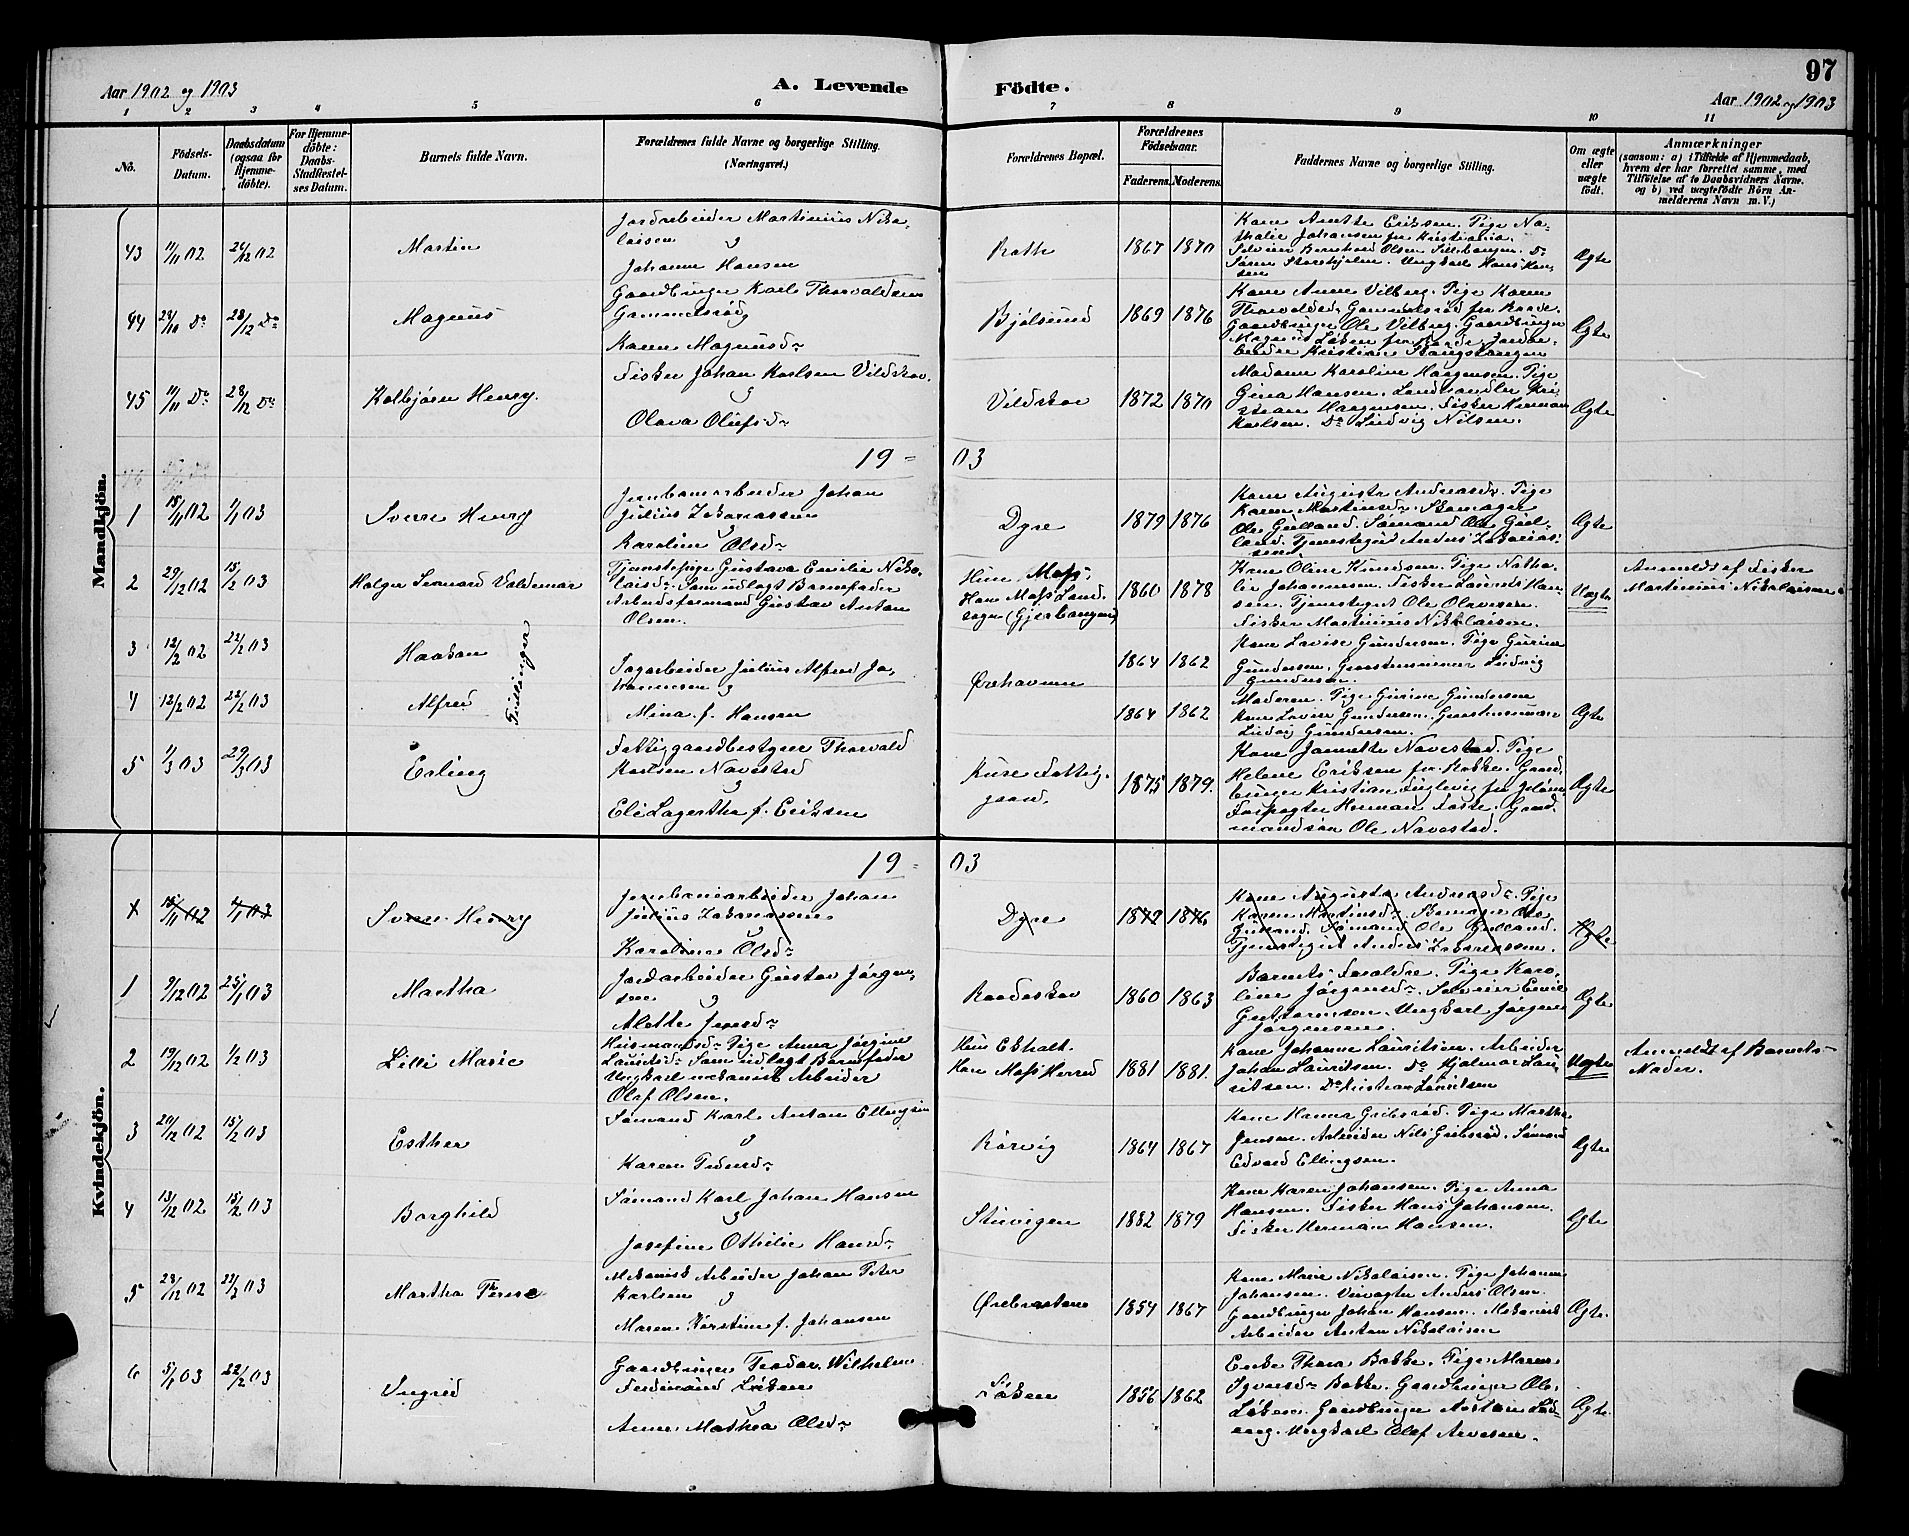 97
Aar 1902 og 1903
A. Levende
Födte.
Aar 1902 og 1903
1 2 3 4 5 6 7 8 9 10 11
No.
Födsels-Datum.
Daabsdatum (ogsaa for Hjemme-döbte).
For Hjemme-döbte: Daabs-Stadfæstel-ses Datum.
Barnets fulde Navn.
Forældrenes fulde Navne og borgerlige Stilling. (Næringsvei.)
Forældrenes Bopæl.
Forældrenes Födselsaar.
Faderens. Moderens.
Faddernes Navne og borgerlige Stilling.
Om ægte eller uægte födt.
Anmærkninger
(saasom: a) i Tilfælde af Hjemmedaab,
hvem der har forrettet samme, med
Tilföielse af to Daabsvidners Navne.
og b) ved uægtefödte Börn An-
melderens Navn m. V.)
Mandkjön.
43 11/11 02 26/12 02 Martin
Jordarbeider Martinius Niko-
laisen og
Johanne Hansen
1867 1870
Kone Anette Eriksen. Pige Na-
thalie Johansen fra Kristiania.
Ægte
44 24/10 Do 28/12 Do Magnus
Gaardbruger Karl Thorvaldsen
Gammelsröd
Karen Magnusdr
Bjölsund 1869 1876
Kone Anne Vilberg. Pige Karen
Gaardbruger Ole Vilberg. Gaardbruger
Ægte
45 11/11 Do 28/12 Do Kolbjörn Henry.
Fisker Johan Karlsen Vildskov.
og
Olava Olufsdr
Vildskov 1872 1870
Madame Karoline Haagensen. Pige
Gina Hansen. Landhandler Kri-
stian Haagensen. Fisker Herman
Karlsen. Do Ludvig Nilsen.
Ægte
19 - 03
1 15/11 02 1/1 03 Sverre Henry
Jernbanearbeider Johan
Julius Zakariassen
og
Karoline Olsdr
Dyre 1879 1876
Kone Augusta Andreasdr. Pige
Karen Martinsdr. Skomager
Ole Gulland. Sömand Ole Gul-
land. Tjenestegut Anders Zakarias-
sen
Ægte
2 29/12 02 15/2 03 Holger Leonard Valdemar
Tjenestepige Gustava Emilie Niko-
laisdr. Som udlagt Barnefader
Arbeidsformand Gustav Anton
Olsen.
Hun Moss,
Han Moss Land-
sogn
1860 1878
Kone Oline Knudsen. Pige Natha-
lie Johannesen. Fisker Laurits Han-
sen. Tjenestegut Ole Olavesen.
Fisker Martinius Nikolaisen.
Uægte
Anmeldt af Fisker
Martinius Nikolaisen.
3 12/2 02 22/2 03 Haakon
Tvillinger
Sagarbeider Julius Alfred Jo-
hannesen og
Mina f. Hansen
1864 1862
Kone Lovise Gundersen. Pige Gurine
Gundersen. Ludvig
Gundersen.
4 12/2 02 22/2 03 Alfred
1864 1862
Moderen. Pige Gurine Gundersen
Kone Lovise Gundersen.
Ludvig Gundersen.
Ægte
5 1/3 03 29/3 03 Erling
Fattiggaardbestyrer Thorvald
Karlsen Navestad
og
Eli Lagertha f. Eriksen
Kure Fattig-
gaard.
1875 1879.
Kone Jannette Navestad. Pige
Helene Eriksen fra Rokke. Gaard-
bruger Kristian Fuglevig fra Jelöen
Forpagter Herman Foss. Gaard-
mandsön Ole Navestad.
Ægte
Kvindekjön.
19 - 03
1 15/11 02 1/1 03 Sverre Henry
Jernbanearbeider Johan
Julius Zakariassen
og
Karoline Olsdr
Dyre 1879 1876
Kone Augusta Andreasdr. Pige
Karen Martinsdr. Skomager Ole
Gulland. Sömand Ole Gulland.
Tjenestegut Anders Zakariassen.
Ægte
1 9/12 02 25/1 03 Martha
Jordarbeider Gustav Jörgen-
sen og
Alette Jensdr
Raadeskov 1860 1863
Barnets Forældre. Pige Karo-
line Jörgensdr. Emil
Guttormsen. Ungkarl Jörgen
Jörgensen.
Ægte
2 19/12 02 1/2 03 Lilli Marie
Husmandsdr Pige Anna Jörgine
Lauritsdr. Som udlagt Barnefader
Ungkarl mekanisk Arbeider
Olaf Olsen.
Hun Ekholt.
Han Moss Herred
1881 1881.
Kone Johanne Lauritsen. Arbeider
Johan Lauritsen. Do Hjalmar Lau-
ritsen. Do Kristian Lauritsen
Uægte
Anmeldt af Barnets
Moder.
3 20/12 02 15/2 03 Esther
Sömand Karl Anton Ellingsen
og
Karen Pedersdr
Rörvig 1864 1867
Kone Hanna Gribsröd. Pige Martha
Jensen. Arbeider Nils Gribsröd. Sömand
Edvard Ellingsen.
Ægte
4 13/12 02 15/2 03 Borghild
Sömand Karl Johan Hansen
og
Josefine Othilie Hansdr
Stuvigen 1882 1879
Kone Karen Johansen. Pige Anna
Hansen. Fisker Hans Johansen.
Fisker Herman Hansen.
Ægte
5 28/12 02 22/2 03 Martha Therese
Mekanisk Arbeider Johan Peter
Karlsen og
Maren Kirstine f. Johansen
1854 1867
Kone Marie Nikolaisen. Pige Johanne
Johansen. Veivogter Anders Olsen.
Gaardbruger Johan Hansen. Mekanisk
Arbeider Anton Nikolaisen
Ægte.
6 5/1 03 22/2 03 Ingrid
Gaardbruger Teodor Wilhelm
Ferdinand Löken
og
Anne Mathea Olsdr
Löken 1856 1862
Enke Thora Bakke. Pige Maren
Bakke. Gaardbruger Ole
Löken. Gaardbruger
Ungkarl Olaf Arvesen.
Ægte.